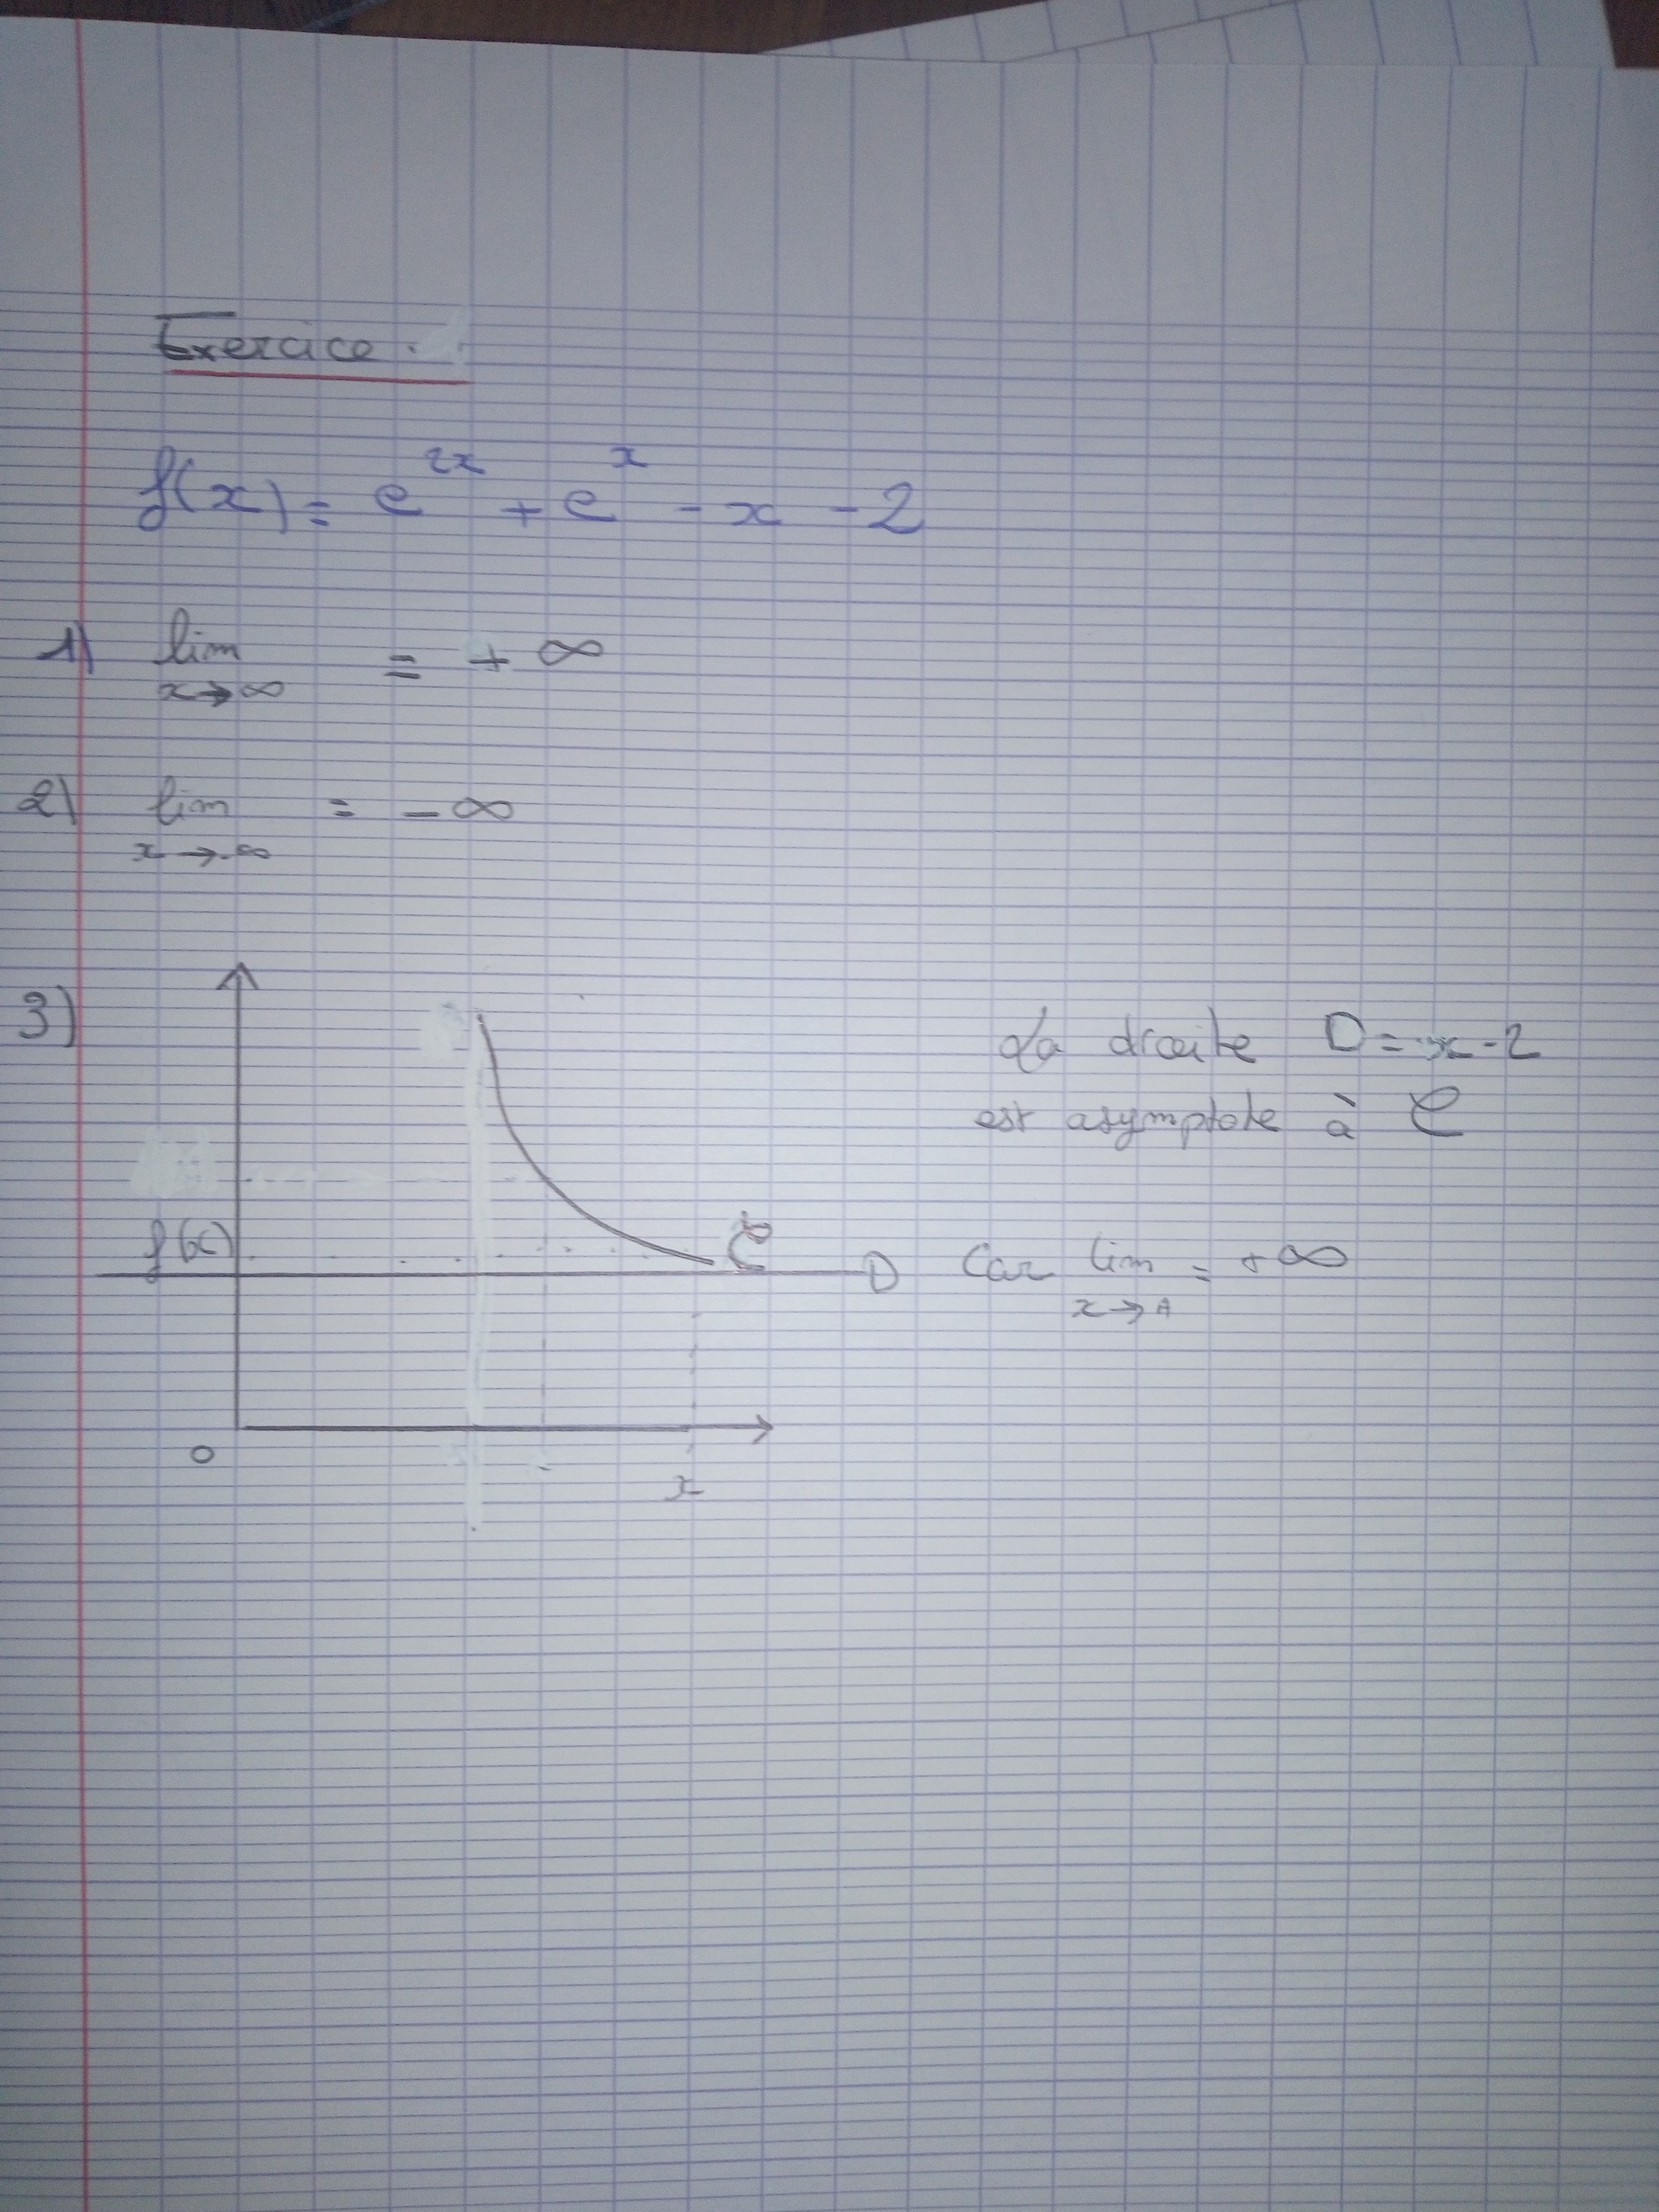 Exercice.
f(x) = e^{2x} + e^{x} - x - 2
1) lim = + ∞
x→∞
2) lim = - ∞
x→-∞
3)
La droite D = x-2
est asymptote à C
f(x)
C
D
Car lim = +∞
x→A
0
x